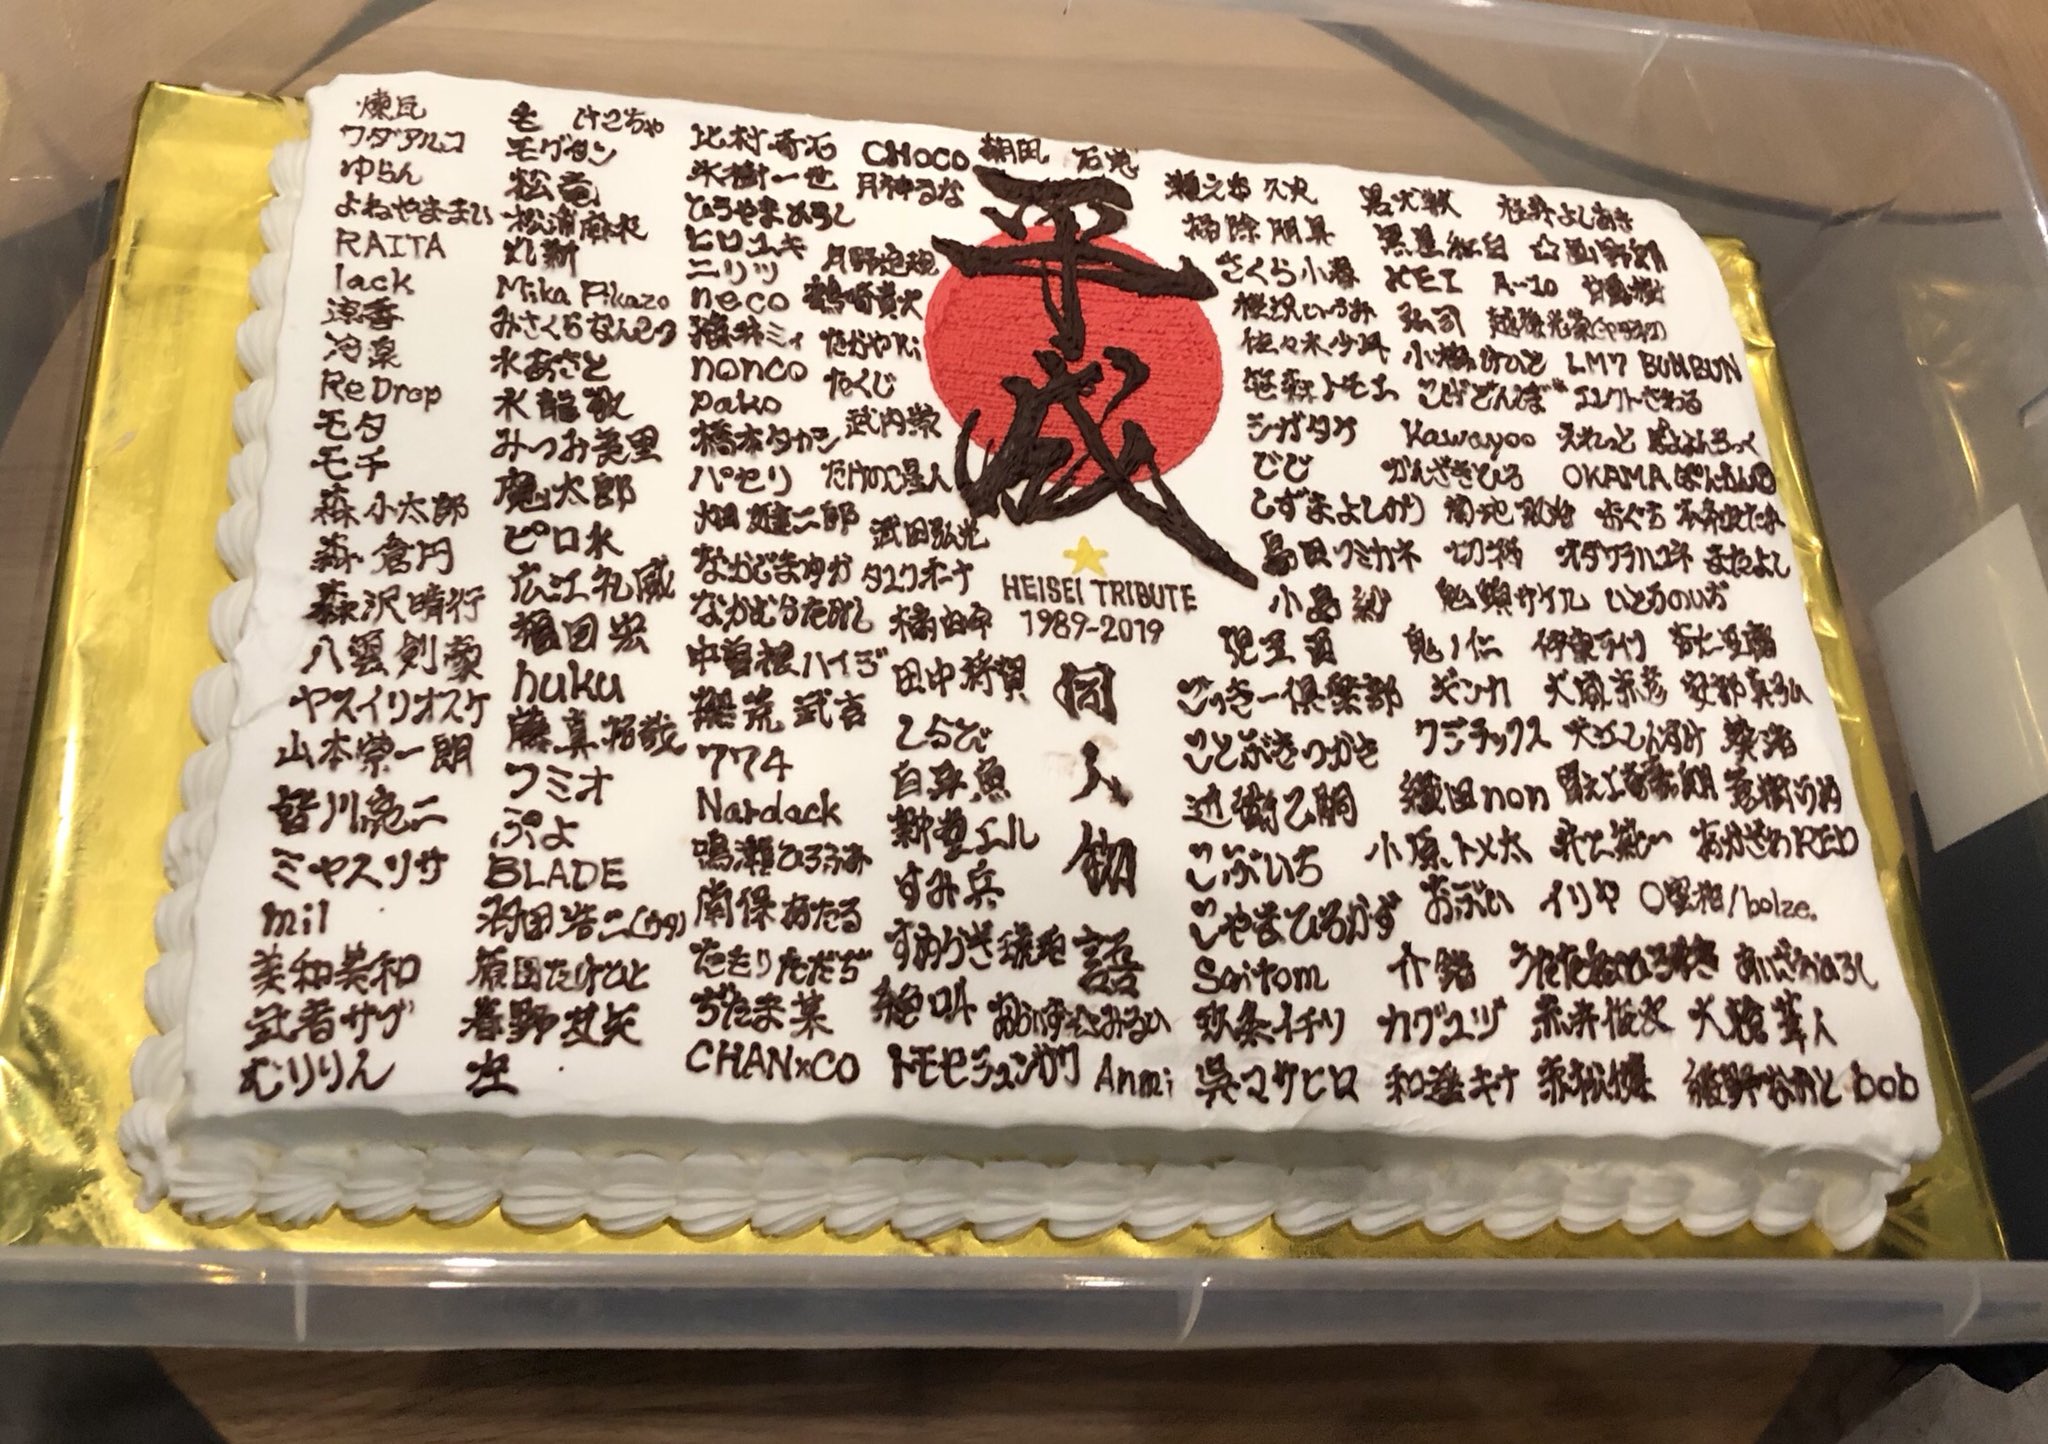 煉瓦
ワダアルコ
ゆらん
よねやままい
RAITA
lack
涼香
冷泉
ReDrop
モタ
モチ
森小太郎
森倉円
森沢晴行
八雲剣豪
ヤスイリオスケ
山本崇一朗
皆川亮二
ミヤスリサ
mil
美和美和
武者サブ
むりりん
も
けこちゃ
モグタン
松竜
松浦麻衣
丸新
Mika Pikazo
みさくらなんこつ
水あさと
水龍敬
みつみ美里
魔太郎
ピロ水
広江礼威
福田宏
huku
藤真拓哉
フミオ
ぷよ
BLADE
羽田浩二(ウダ)
原田たけひと
春野友矢
左
比村奇石
氷樹一世
ひろやまひろし
ヒロユキ
ニリツ
neco
猫井ミィ
nonco
pako
橋本タカシ
パセリ
畑健二郎
なかじまゆか
なかむらたかし
中曽根ハイジ
椥荒武言
774
Nardack
鳴瀬ひろふみ
南保あたる
たもりただぢ
ぢたま某
CHAN×CO
CHOCO
月神るな
月野定規
鶴崎貴大
たかやKi
たくじ
武内崇
たけのこ星人
武田弘光
タユクオーナ
橘由宇
田中将賀
しらび
白身魚
新堂エル
すみ兵
すめらぎ琥珀
絶叫
トモセシュンサク
朝凪
石恵
平成
HEISEI TRIBUTE
1989-2019
同人物語
あらいずみるい
Anmi
瀬之本久史
掃除朋具
さくら小春
桜沢いづみ
佐々木少年
笹森トモエ
シガタケ
じじ
しずまよしのり
島田フミカネ
小島紗
児玉酉
ごっきー倶楽部
ことぶきつかさ
近衛乙嗣
こぶいち
こやまひろかず
Saitom
弥条イチリ
呉マサヒロ
黒犬獣
黒星紅白
KEI
弘司
小梅けいと
こげどんぼ*
kawayoo
かんざきひろ
菊池政治
切符
鬼頭サケル
鬼ノ仁
ギンカ
ワニマックス
織田non
小原トメ太
おぶい
介錯
カグユヅ
和遥キナ
桂井よしあき
☆画野朗
A-10
甘露樹
越後光栄(ヤサカリ)
LM7
BUNBUN
エレクトさわる
えれっと
ぽよよんろっく
OKAMA
ぽんかん⑧
おぐち
本庄たま
オダワラハコネ
またよし
いとうのいぢ
伊東ライフ
奇仁豆腐
大嵐宗彦
安部真弘
葵渚
蒼樹うめ
あかざわRED
イリヤ
〇蜜柑/bolze.
うたたねひろゆき
あいざわひろし
赤井俊次
大槍葦人
赤松健
綾野なおと
bob